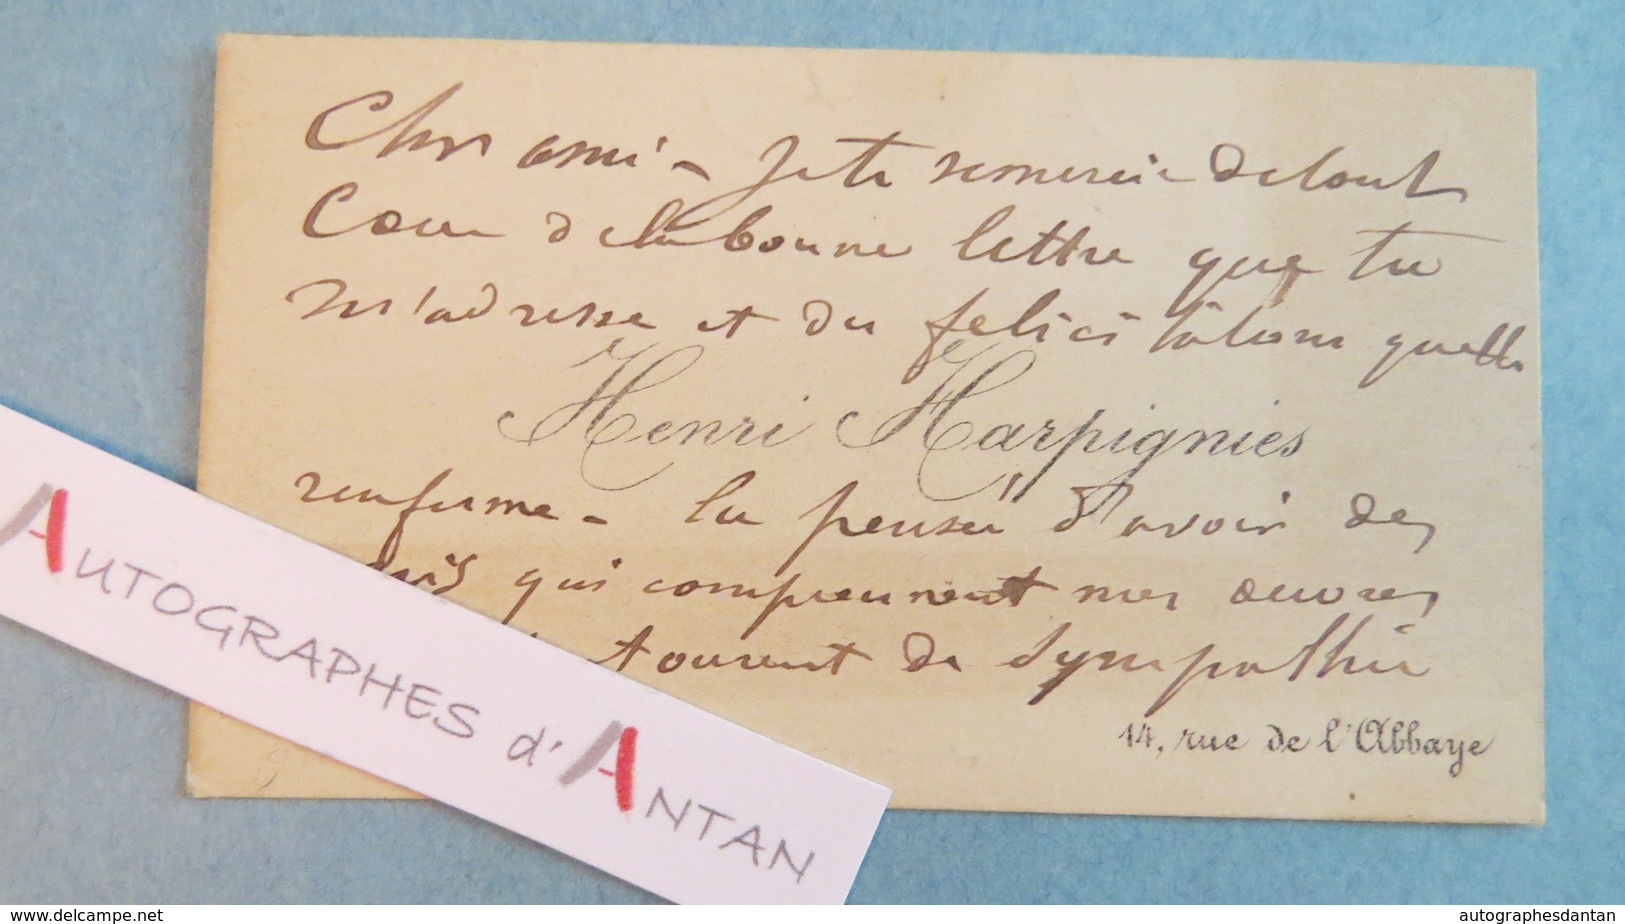 Cher ami - Je te remercie de tout
Cœur de la bonne lettre que tu
m'adresse et du felicitations quelle
Henri Harpignies
renferme - la pensée d'avoir des
amis qui comprennent mes œuvres
tourent de sympathie
14, rue de l'Abbaye
AUTOGRAPHES d'ANTAN
www.delcampe.net
autographesdantan